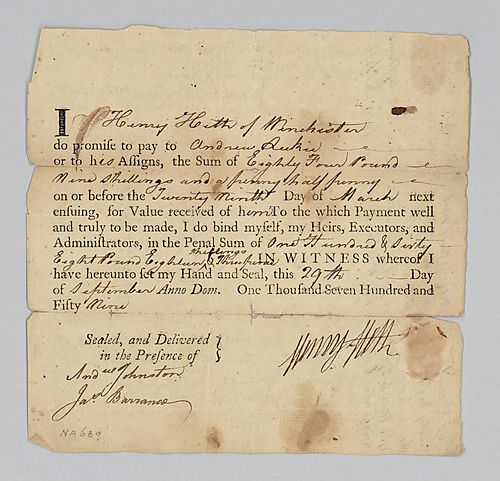 I Henry Heth of Winchester
do promise to pay to Andrew Leckie
or to his Aſſigns, the Sum of Eighty Four Pound
Nine Shillings and a penny half penny
on or before the Twenty Ninth Day of March next
enſuing, for Value received of him To the which Payment well
and truly to be made, I do bind myſelf, my Heirs, Executors, and
Adminiſtrators, in the Penal Sum of One Hundred & Sixty
Eight Pound Eighteen Shillings & Threepence IN WITNESS whereof I
have hereunto ſet my Hand and Seal, this 29th Day
of September Anno Dom. One Thouſand Seven Hundred and
Fifty Nine
Sealed, and Delivered
in the Preſence of
Henry Heth
Andw Johnston
Jas Barrance
NA 689